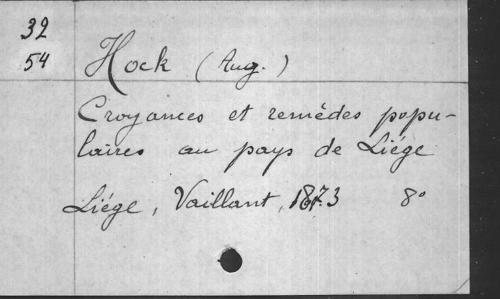 32
54
Hock (Aug.)
Croyances et remèdes popu-
laires au pays de Liége
Liége, Vaillant, 1873 8°